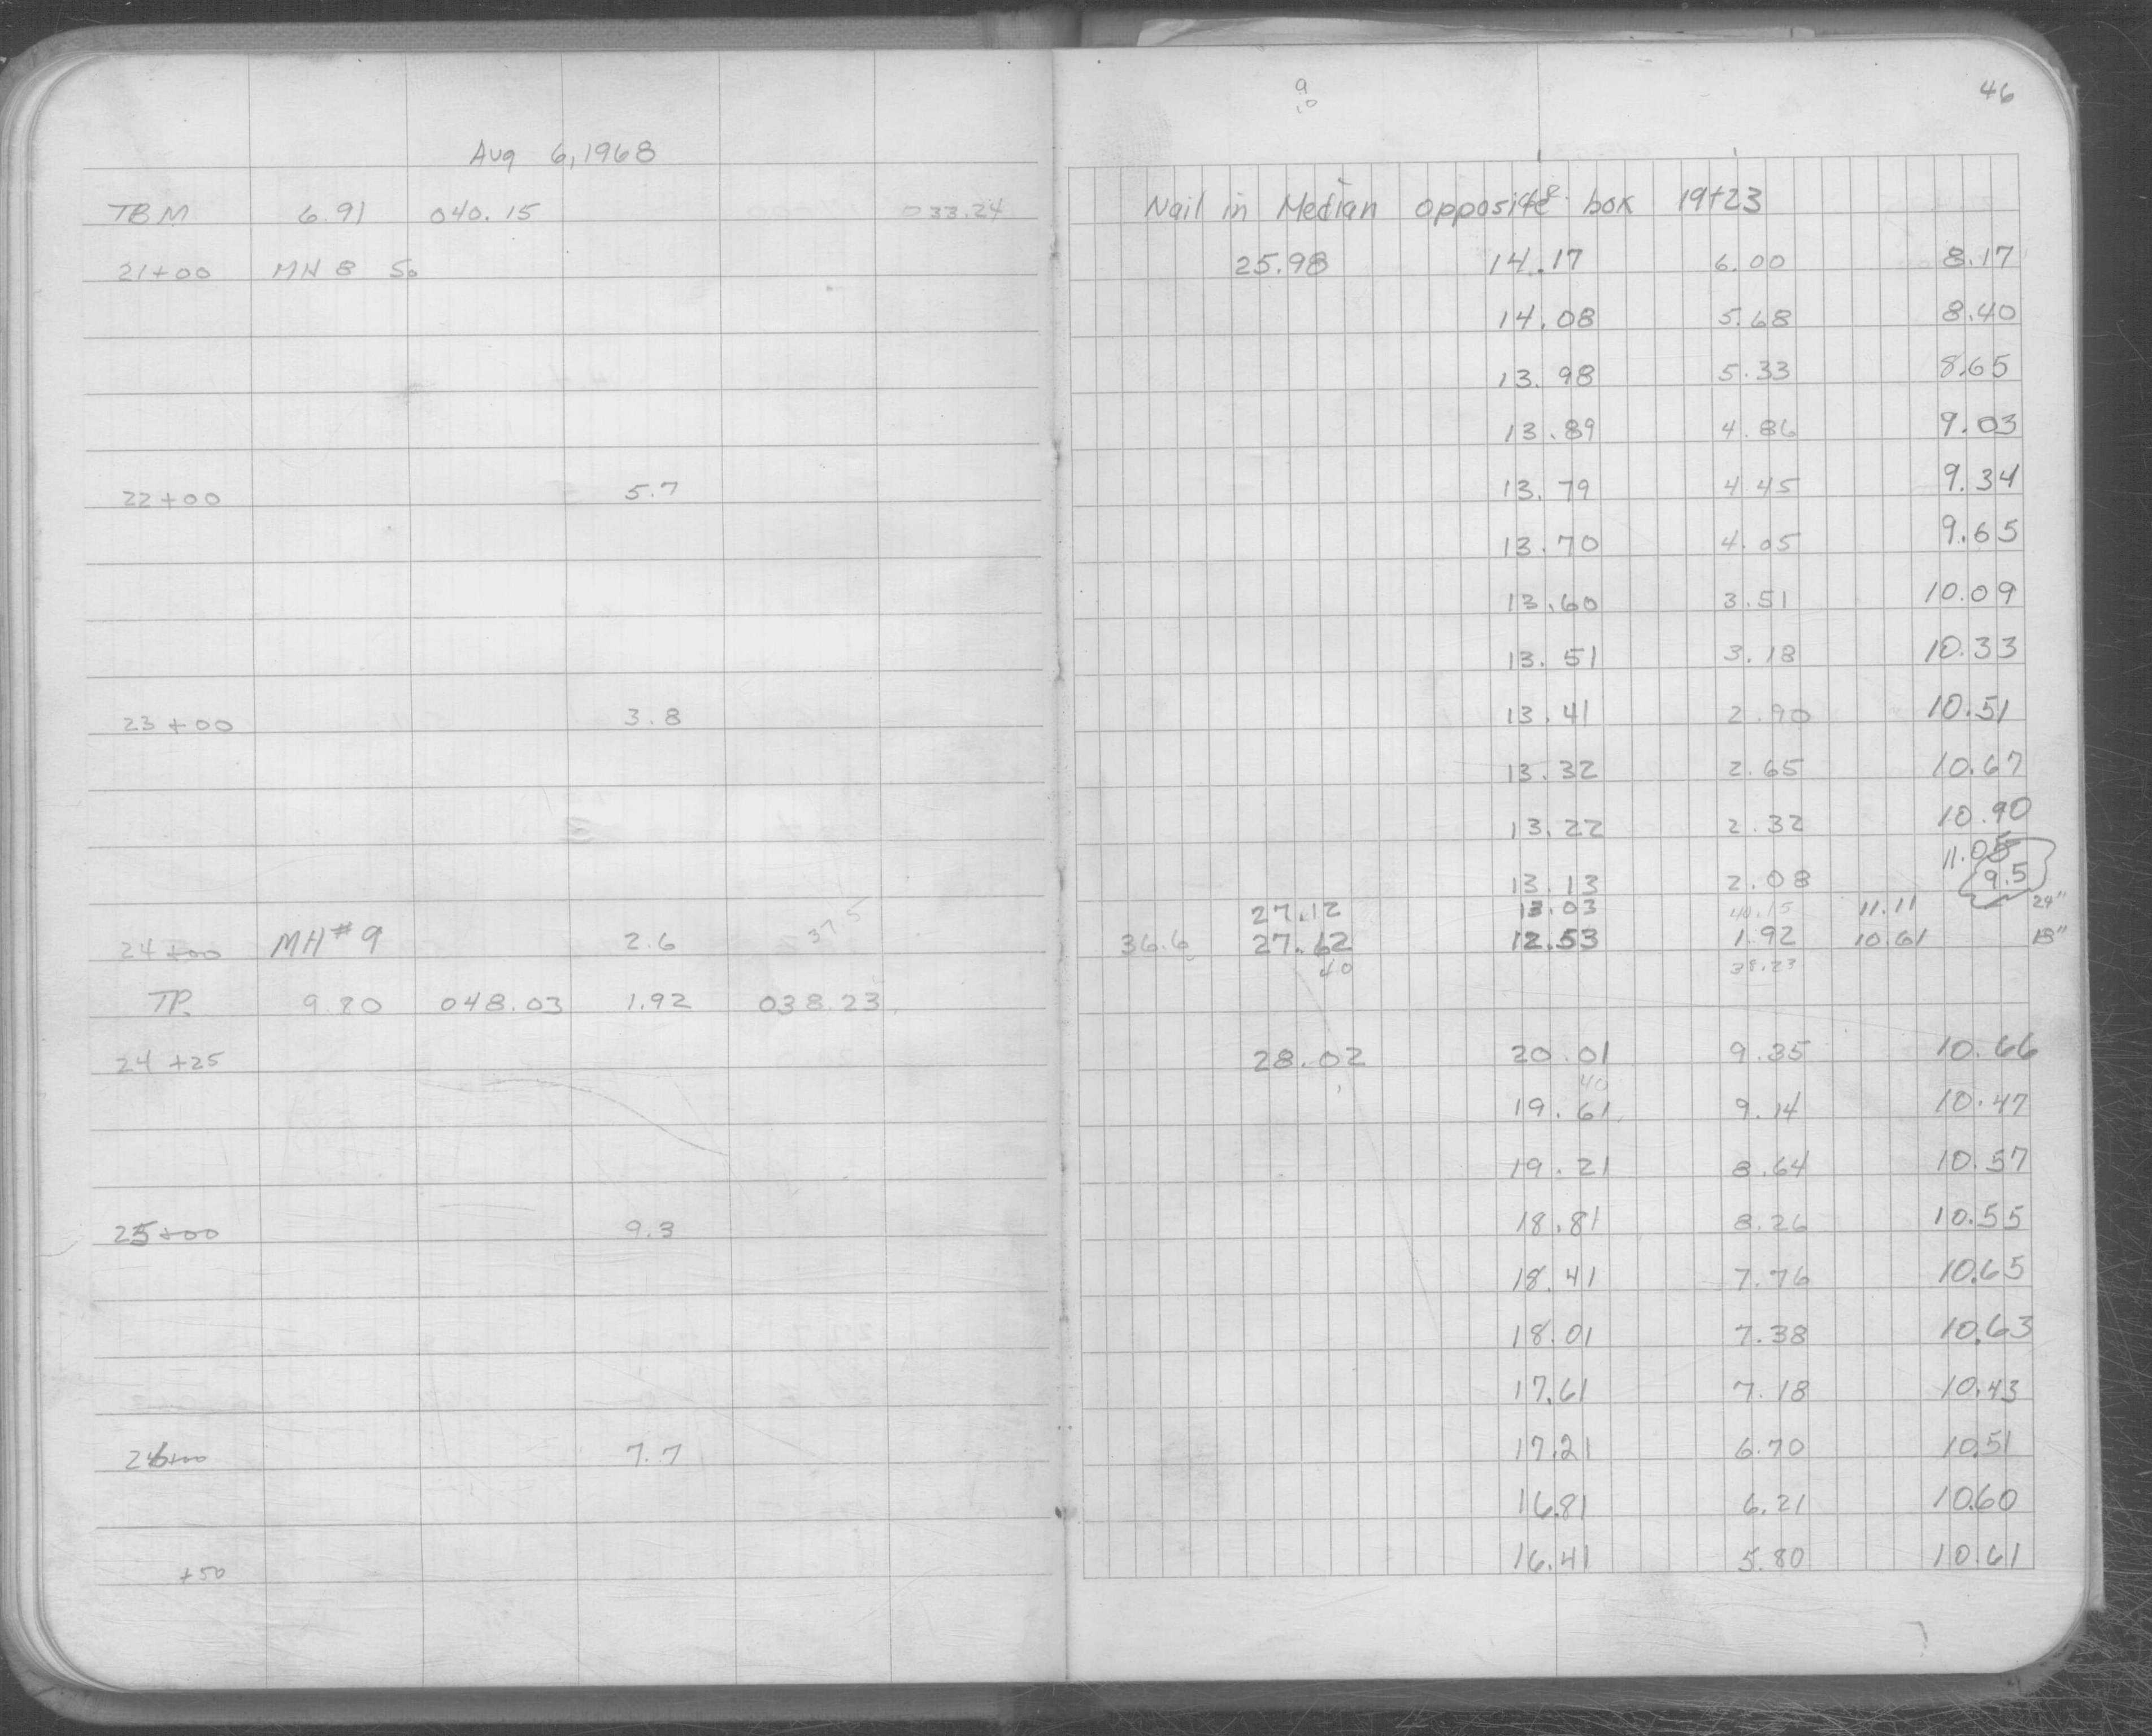 46
Aug 6, 1968
TBM 6.91 040.15 033.24 Nail in Median opposite box 19+23
21+00 MH 8 So 25.98 14.17 6.00 8.17
14.08 5.68 8.40
13.98 5.33 8.65
13.89 4.86 9.03
22+00 5.7 13.79 4.45 9.34
13.70 4.05 9.65
13.60 3.51 10.09
13.51 3.18 10.33
23+00 3.8 13.41 2.90 10.51
13.32 2.65 10.67
13.22 2.32 10.90
13.13 2.08 11.05
9.5
27.12 13.03 40.15 11.11 24"
24+00 MH#9 2.6 37.5 36.6 27.62 12.53 1.92 10.61 18"
40 38.23
TP. 9.80 048.03 1.92 038.23
24+25 28.02 20.01 9.35 10.66
40
19.61 9.14 10.47
19.21 8.64 10.57
25+00 9.3 18.81 8.26 10.55
18.41 7.76 10.65
18.01 7.38 10.63
17.61 7.18 10.43
26+00 7.7 17.21 6.70 10.51
16.81 6.21 10.60
+50 16.41 5.80 10.61